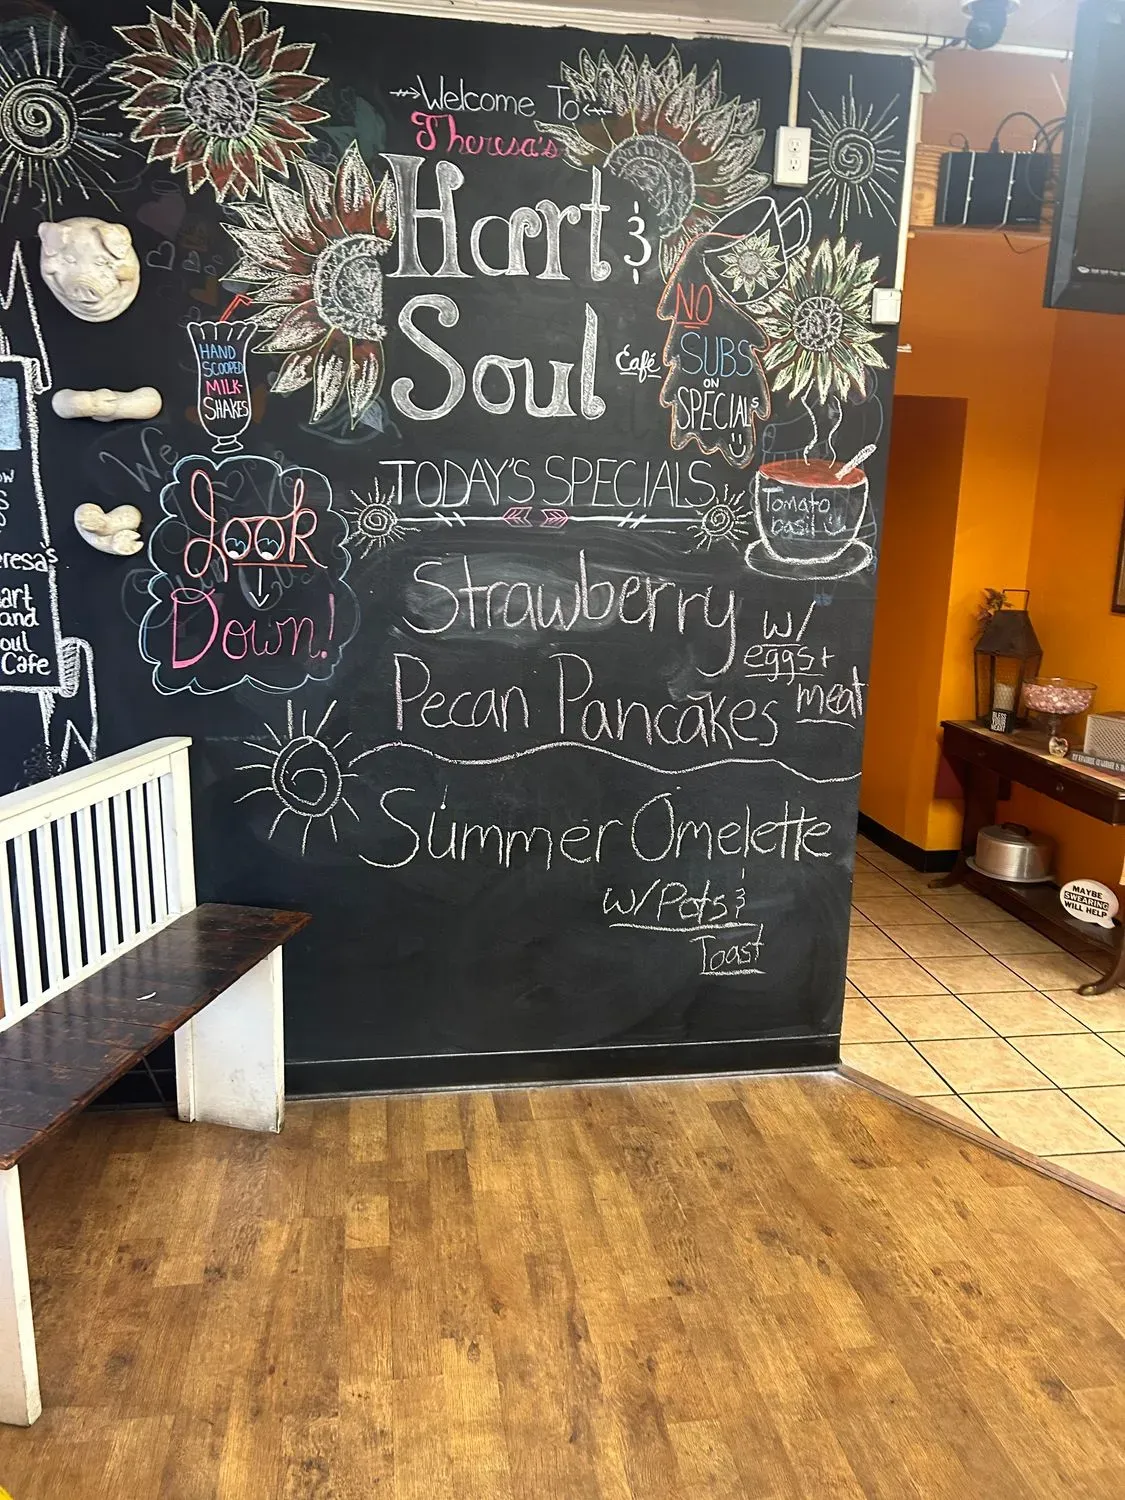 Welcome To
Theresa's
Hart &
Soul
Café
NO
SUBS
ON
SPECIALS
HAND
SCOOPED
MILK-
SHAKES
Look
Down!
TODAY'S SPECIALS
Tomato
basil
Strawberry
Pecan Pancakes
w/
eggs +
meat
Summer Omelette
w/ Pots &
Toast
eresa's
art
and
oul
Cafe
MAYBE
SWEARING
WILL HELP